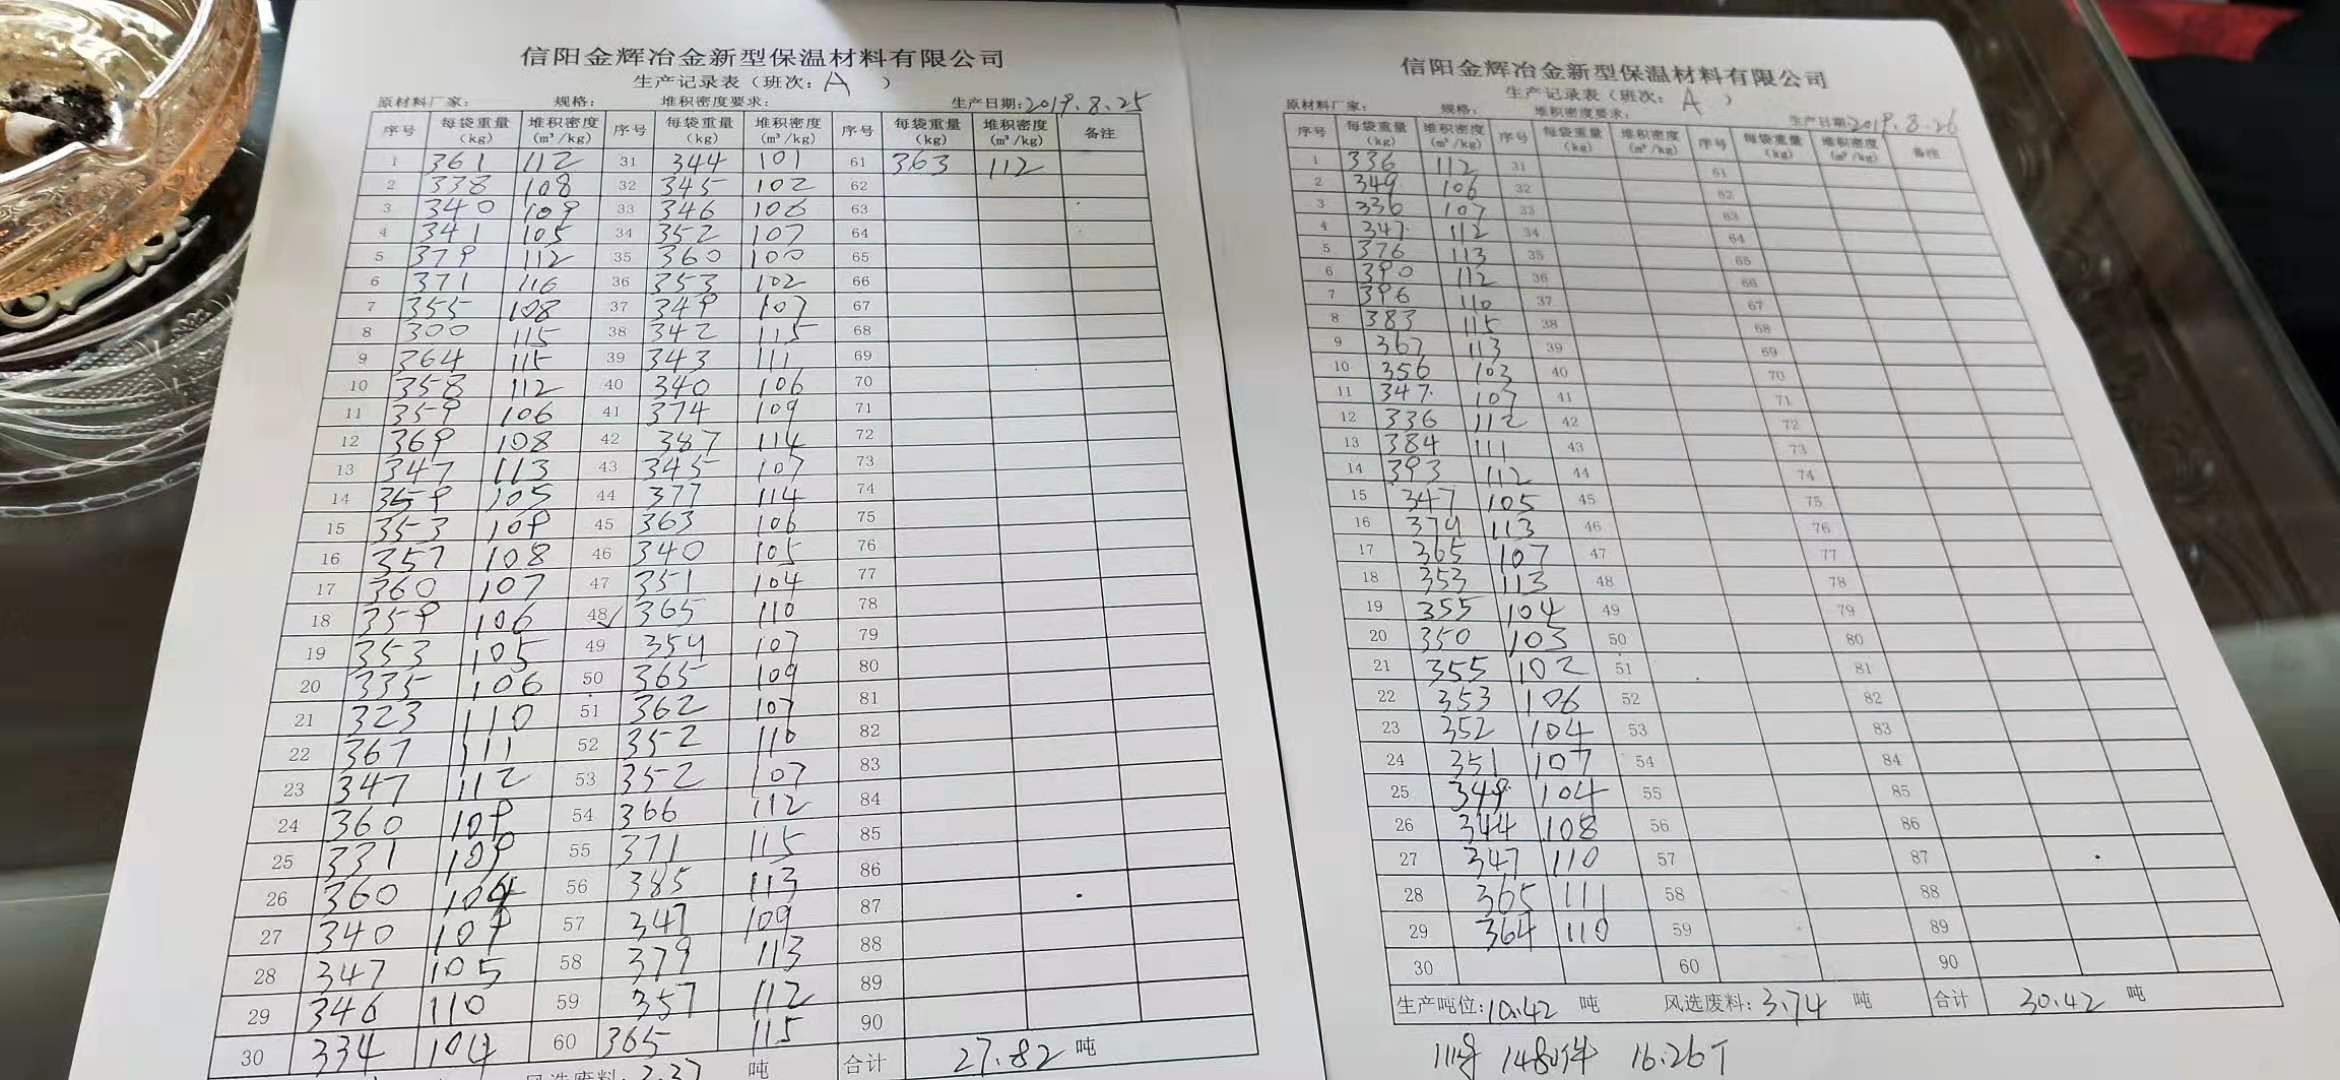 信阳金辉冶金新型保温材料有限公司
生产记录表（班次：A）
原材料厂家： 规格： 堆积密度要求： 生产日期：2019.8.25
序号 每袋重量(kg) 堆积密度(m³/kg) 序号 每袋重量(kg) 堆积密度(m³/kg) 序号 每袋重量(kg) 堆积密度(m³/kg) 备注
1 361 112 31 344 101 61 363 112
2 338 108 32 345 102 62
3 340 109 33 346 106 63
4 341 105 34 352 107 64
5 379 112 35 360 100 65
6 371 116 36 353 102 66
7 355 108 37 349 107 67
8 300 115 38 342 115 68
9 364 115 39 343 111 69
10 358 112 40 340 106 70
11 359 106 41 374 109 71
12 369 108 42 387 114 72
13 347 113 43 345 107 73
14 359 105 44 377 114 74
15 353 109 45 363 106 75
16 357 108 46 340 105 76
17 360 107 47 351 104 77
18 359 106 48✓ 365 110 78
19 353 105 49 354 107 79
20 335 106 50 365 109 80
21 323 110 51 362 107 81
22 367 111 52 352 110 82
23 347 112 53 352 107 83
24 360 109 54 366 112 84
25 331 109 55 371 115 85
26 360 104 56 385 113 86
27 340 109 57 347 109 87
28 347 105 58 379 113 88
29 346 110 59 357 112 89
30 334 104 60 365 115 90
风选废料： 吨 合计 27.82 吨
信阳金辉冶金新型保温材料有限公司
生产记录表（班次：A）
原材料厂家： 规格： 堆积密度要求： 生产日期：2019.8.26
序号 每袋重量(kg) 堆积密度(m³/kg) 序号 每袋重量(kg) 堆积密度(m³/kg) 序号 每袋重量(kg) 堆积密度(m³/kg) 备注
1 336 112 31 61
2 349 106 32 62
3 336 107 33 63
4 347 112 34 64
5 376 113 35 65
6 390 112 36 66
7 396 110 37 67
8 383 115 38 68
9 367 113 39 69
10 356 103 40 70
11 347 107 41 71
12 336 112 42 72
13 384 111 43 73
14 393 112 44 74
15 347 105 45 75
16 379 113 46 76
17 365 107 47 77
18 353 113 48 78
19 355 104 49 79
20 350 103 50 80
21 355 102 51 81
22 353 106 52 82
23 352 104 53 83
24 351 107 54 84
25 349 104 55 85
26 344 108 56 86
27 347 110 57 87
28 365 111 58 88
29 364 110 59 89
30 60 90
生产吨位：10.42 吨 风选废料：3.74 吨 合计 30.42 吨
111号 1480件 16.26T